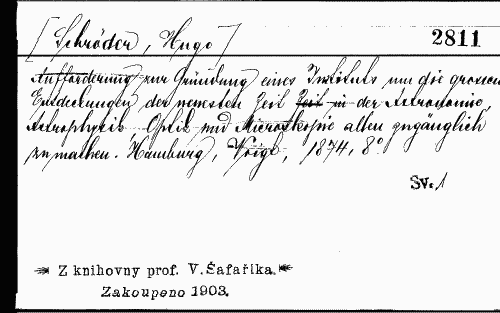 [Schröder, Hugo]
2811
Aufforderung zur Gründung eines Instituts um die grossen
Entdeckungen der neuesten Zeit Zeit in der Astronomie,
Astrophysik Optik und Microskopie allen zugänglich
zu machen. Hamburg, Voigt, 1874, 8°
Sv. 1
Z knihovny prof. V. Šafaříka.
Zakoupeno 1903.